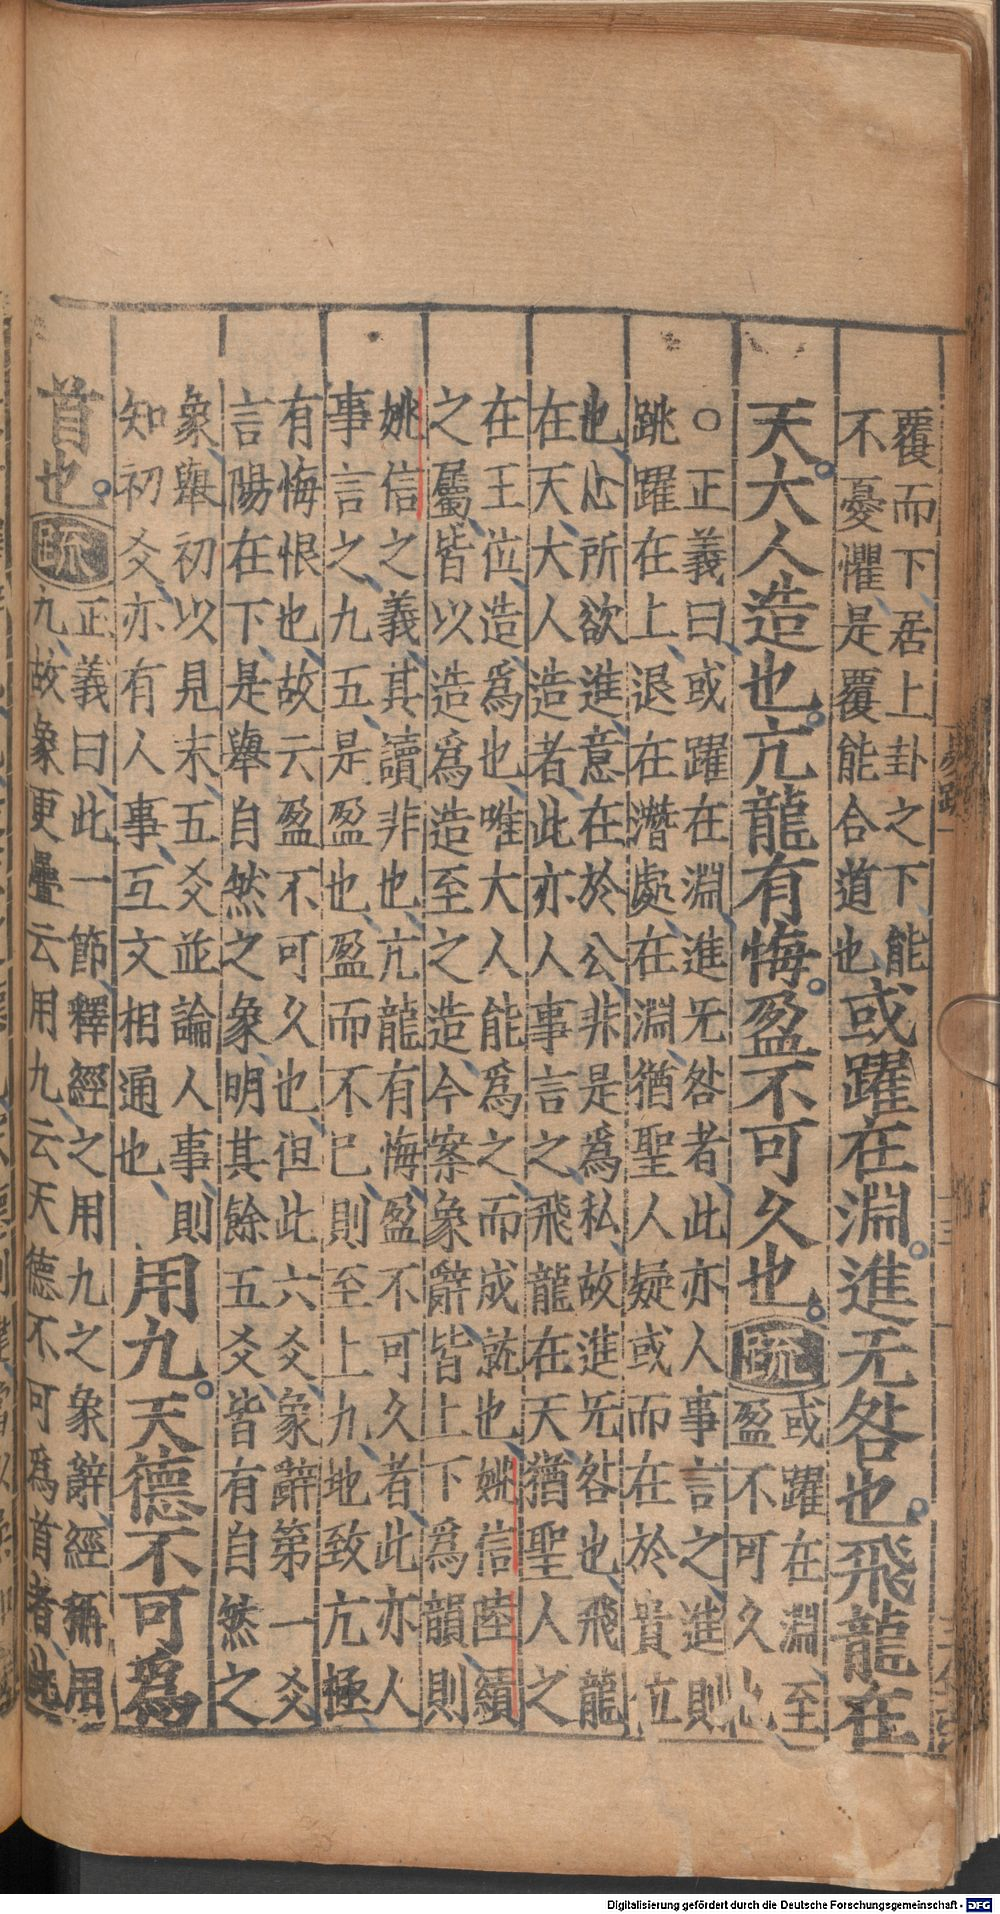 覆而下居上卦之下能
不憂懼是覆能合道也或躍在淵進无咎也飛龍在
天大人造也亢龍有悔盈不可久也疏或躍在淵至
盈不可久也
○正義曰或躍在淵進无咎者此亦人事言之進則
跳躍在上退在潛處在淵猶聖人疑或而在於貴位
也心所欲進意在於公非是爲私故進无咎也飛龍
在天大人造者此亦人事言之飛龍在天猶聖人之
在王位造爲也唯大人能爲之而成就也姚信陸績
之屬皆以造爲造至之造今案象辭皆上下爲韻則
姚信之義其讀非也亢龍有悔盈不可久者此亦人
事言之九五是盈也盈而不已則至上九地致亢極
有悔恨也故云盈不可久也但此六爻象辭第一爻
言陽在下是舉自然之象明其餘五爻皆有自然之
象舉初以見末五爻並論人事則
知初爻亦有人事互文相通也用九天德不可爲
首也疏正義曰此一節釋經之用九之象辭經稱用
九故象更疊云用九云天德不可爲首者此
Digitalisierung gefördert durch die Deutsche Forschungsgemeinschaft - DFG